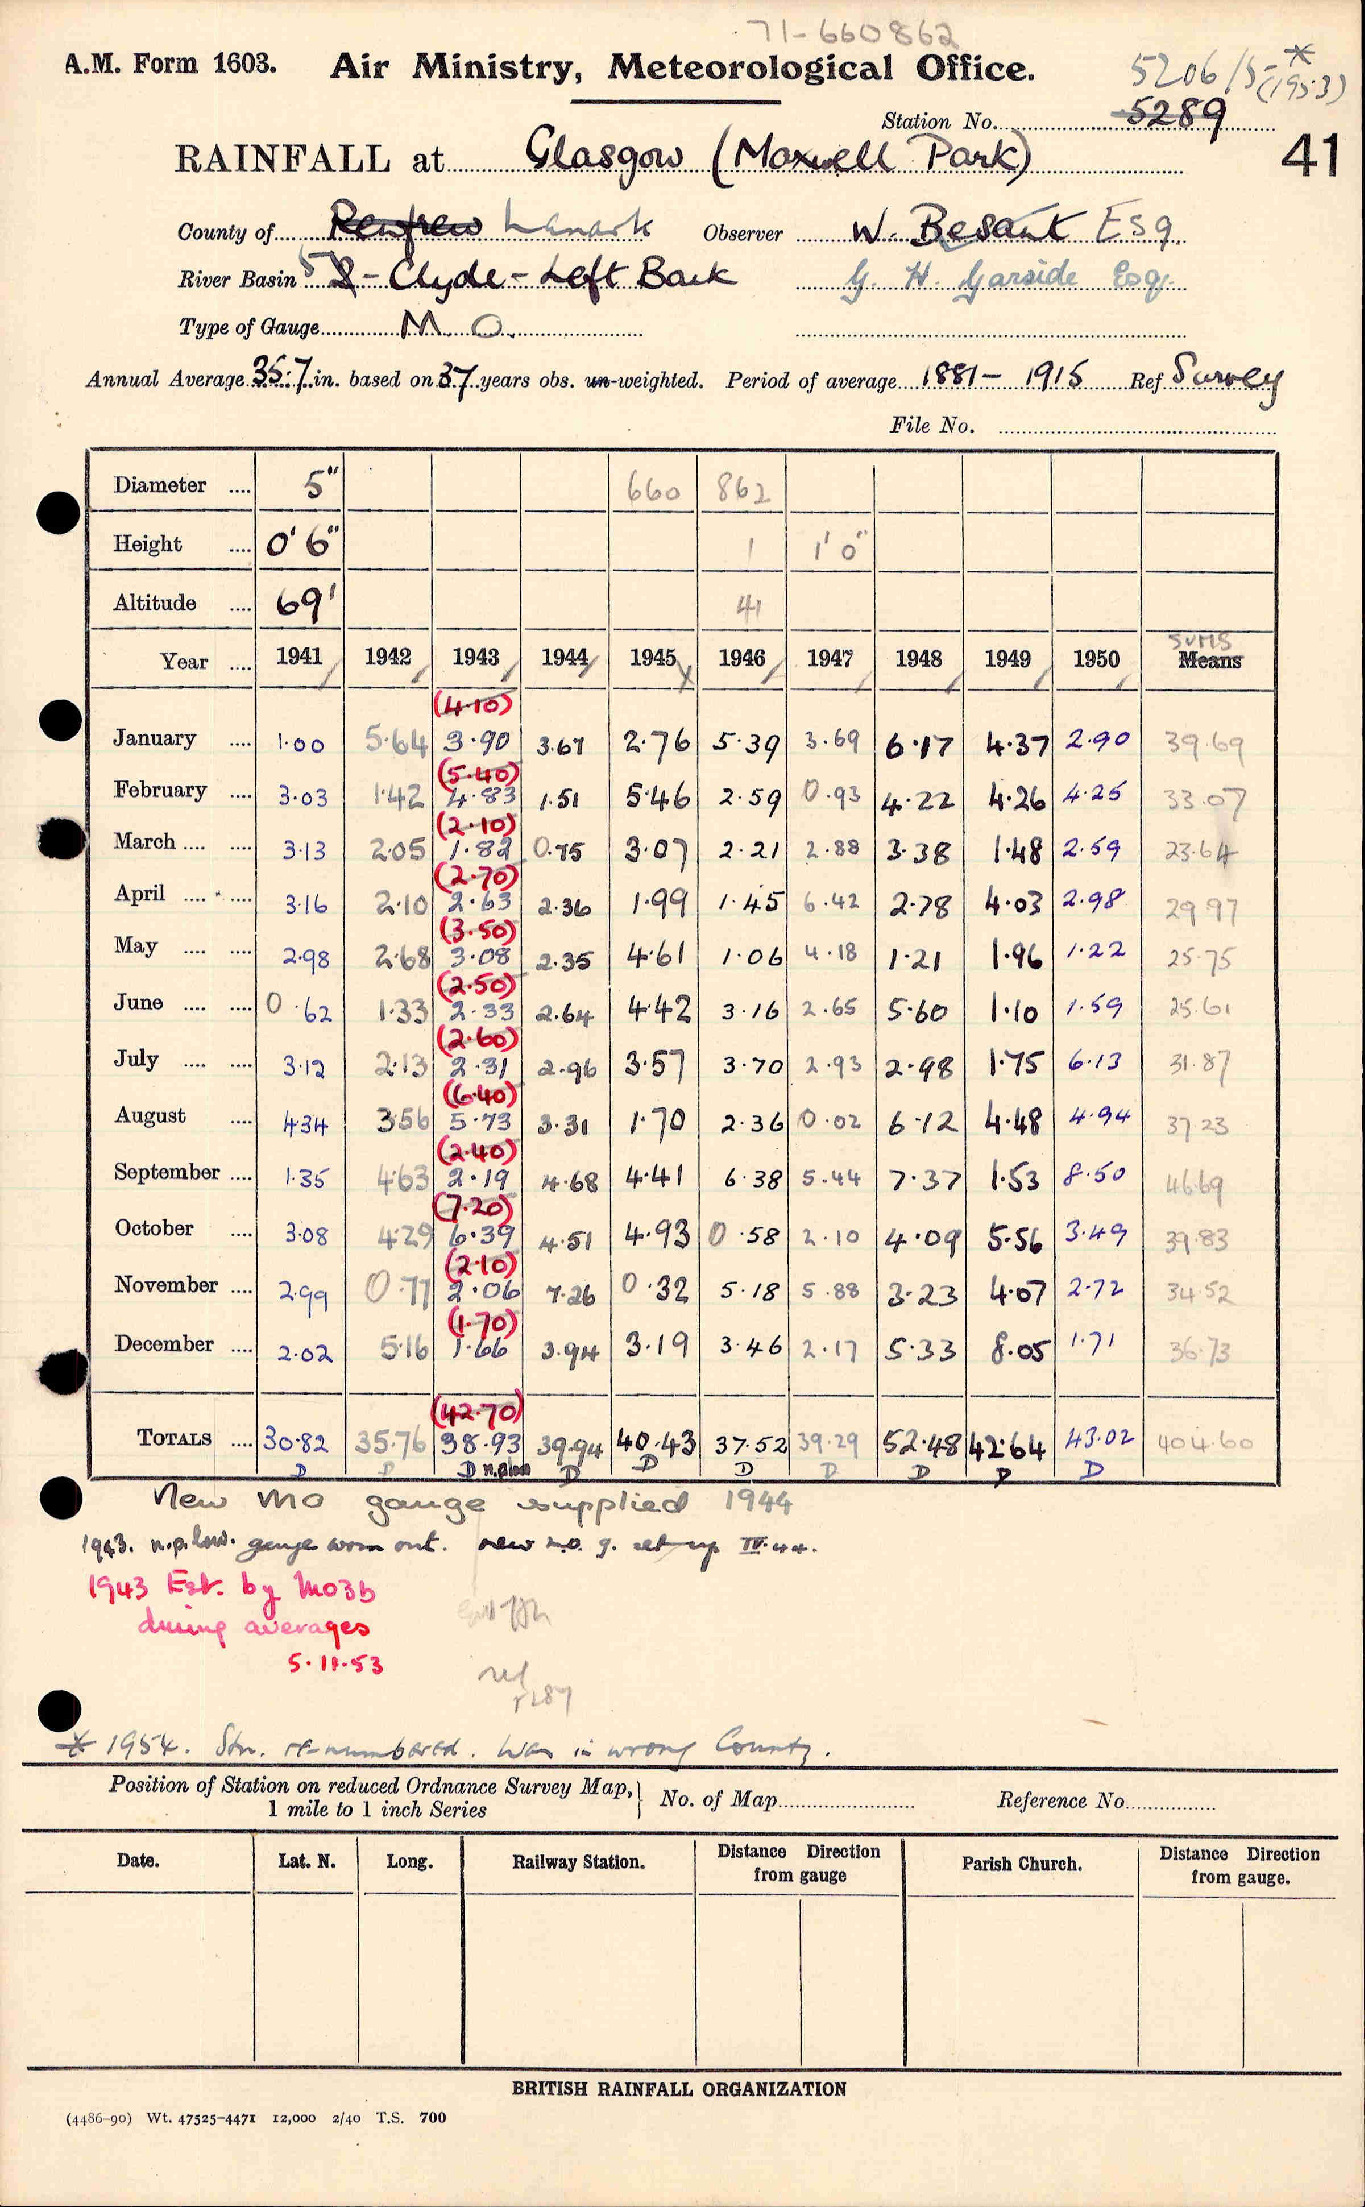 71-660862
A.M. Form 1603. Air Ministry, Meteorological Office. 5206/5 * (1953)
Station No. 5289
RAINFALL at Glasgow (Maxwell Park) 41
County of Renfrew Lanark Observer W. Besant Esq
River Basin 5 8 - Clyde - Left Bank G. H. Garside Esq.
Type of Gauge M. O.
Annual Average 35.7 in. based on 37 years obs. un-weighted. Period of average 1881 - 1915 Ref Survey
File No.
Diameter .... 5" 660 862
Height .... 0' 6" 1 1' 0"
Altitude .... 69' 41
SUMS
Year .... 1941 1942 1943 1944 1945 1946 1947 1948 1949 1950 Means
(4.10)
January .... 1.00 5.64 3.90 3.67 2.76 5.39 3.69 6.17 4.37 2.90 39.69
(5.40)
February .... 3.03 1.42 4.83 1.51 5.46 2.59 0.93 4.22 4.26 4.25 33.07
(2.10)
March .... .... 3.13 2.05 1.82 0.75 3.07 2.21 2.88 3.38 1.48 2.59 23.64
(2.70)
April .... .... 3.16 2.10 2.63 2.36 1.99 1.45 6.42 2.78 4.03 2.98 29.97
(3.50)
May .... .... 2.98 2.68 3.08 2.35 4.61 1.06 4.18 1.21 1.96 1.22 25.75
(2.50)
June .... .... 0.62 1.33 2.33 2.64 4.42 3.16 2.65 5.60 1.10 1.59 25.61
(2.60)
July .... .... 3.12 2.13 2.31 2.96 3.57 3.70 2.93 2.98 1.75 6.13 31.87
(6.40)
August .... 4.34 3.56 5.73 3.31 1.70 2.36 0.02 6.12 4.48 4.94 37.23
(2.40)
September .... 1.35 4.63 2.19 4.68 4.41 6.38 5.44 7.37 1.53 8.50 46.69
(7.20)
October .... 3.08 4.29 6.39 4.51 4.93 0.58 2.10 4.09 5.56 3.49 39.83
(2.10)
November .... 2.99 0.77 2.06 7.26 0.32 5.18 5.88 3.23 4.07 2.72 34.52
(1.70)
December .... 2.02 5.16 1.66 3.94 3.19 3.46 2.17 5.33 8.05 1.71 36.73
(42.70)
TOTALS .... 30.82 35.76 38.93 39.94 40.43 37.52 39.29 52.48 42.64 43.02 404.60
D D D n.p.low D D D D D D D
New MO gauge supplied 1944
1943. n.p.low. gauge worn out. new m.o. g. set up IV.44.
1943 Est. by MO3b
during averages
5.11.53
* 1954. Stn. re-numbered. Was in wrong County.
Position of Station on reduced Ordnance Survey Map,
1 mile to 1 inch Series
No. of Map
Reference No.
Date. Lat. N. Long. Railway Station. Distance Direction from gauge Parish Church. Distance Direction from gauge.
BRITISH RAINFALL ORGANIZATION
(4486-90) Wt. 47525-4471 12,000 2/40 T.S. 700